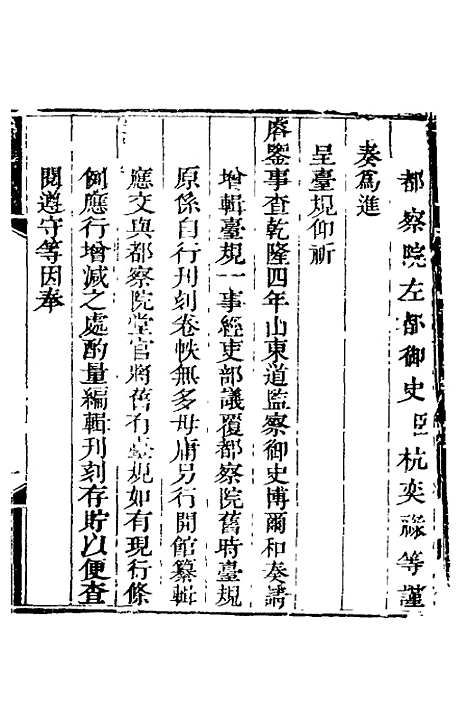 都察院左都御史臣杭奕祿等謹
奏爲進
呈臺規仰祈
睿鑒事查乾隆四年山東道監察御史博爾和奏請
增輯臺規一事經吏部議覆都察院舊時臺規
原係自行刊刻卷帙無多毋庸另行開館纂輯
應交與都察院堂官將舊有臺規如有現行條
例應行增減之處酌量編輯刊刻存貯以便查
閱遵守等因奉